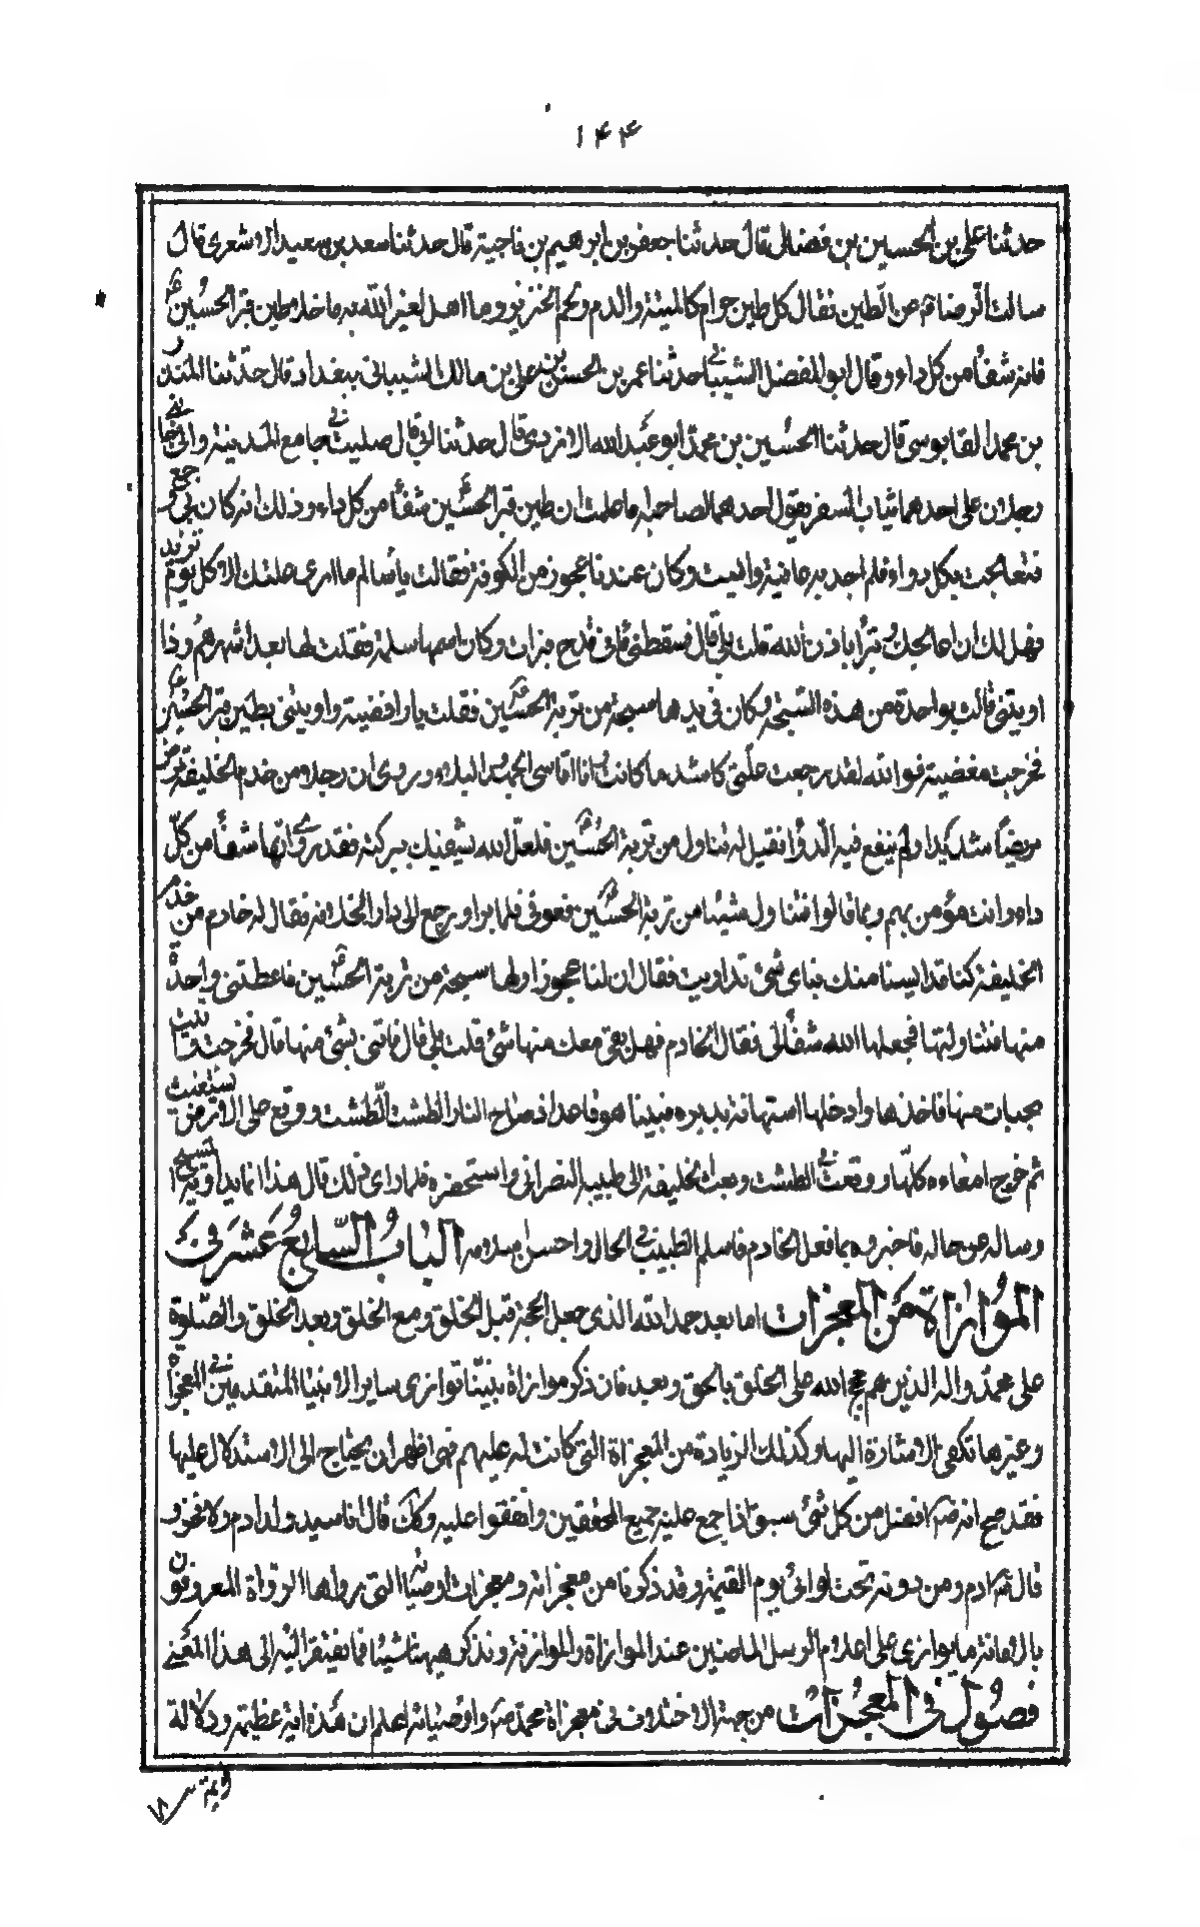 ۱۴۴
حدثنا علی بن الحسین بن فضال قال حدثنا جعفر بن ابرهیم بن ناجیة قال حدثنا سعد بن سعید الاشعری قال
سالت الرضا ع عن الطین فقال کل طین حرام کالمیتة والدم ولحم الخنزیر وما اهل لغیر الله به ما خلا طین قبر الحسین ع
فانه شفاء من کل داء وقال ابو المفضل الشیبانی حدثنا عمر بن الحسن بن علی بن مالک الشیبانی ببغداد قال حدثنا المنذر
بن محمد القابوسی قال حدثنا الحسین بن محمد ابو عبد الله الازدی قال حدثنا ابی قال صلیت فی جامع المدینة والی جانبی
رجلان علی احدهما ثیاب السفر یقول احدهما لصاحبه ما علمت ان طین قبر الحسین شفاء من کل داء وذلک انه کان بی وجع
فتعالجت بکل دواء فلم اجد به عافیة وایست وکان عندنا عجوز من الکوفة فقالت یا سالم ما اری علتک الا کل یوم تزید
فهل لک ان اعالجک فتبرأ باذن الله قلت بلی قال فسقطنی ماء فی قدح فبرات وکان اسمها سلمة فقلت لها بعد اشهر بم ذا
داویتنی قالت بواحدة من هذه السبحة وکان فی یدها سبحة من تربة الحسین ع فقلت یا رافضیة داویتنی بطین قبر الحسین ع
فخرجت مغضبة فوالله لقد رجعت علتی کاشد ما کانت وانا اقاسی الجهد والبلاء وروی ان رجلا من خدم الخلیفة مرض
مرضا شدیدا ولم ینفع فیه الدواء فقیل له تناول من تربة الحسین ع فلعل الله یشفیک ببرکته فقد روی انها شفاء من کل
داء وانت مؤمن بهم وبما قالوا فتناول شیئا من تربة الحسین ع فعوفی فلما برا ورجع الی دار الخلافة فقال له خادم من خدم
الخلیفة کنا قد ایسنا منک فبای شیء تداویت فقال ان لنا عجوزا ولها سبحة من تربة الحسین ع فاعطتنی واحدة
منها فتناولتها فجعلها الله شفاء لی فقال الخادم فهل بقی معک منها شیء قلت بلی قال فاتنی بشیء منها قال فخرجت فاتیت
بحبات منها فاخذها وادخلها استهانة بدبره فبینا هو فاعل اذ صاح النار الطشت الطشت ووقع علی الارض یستغیث
ثم خرج امعاءه کلها ووقعت فی الطشت وبعث الخلیفة الی طبیبه النصرانی واستحضره فلما رای ذلک قال هذا انما یداویه المسیح
وساله عن حاله فاخبروه بما فعل الخادم فاسلم الطبیب فی الحال واحسن اسلامه الباب السابع عشر فی
الموازاة من المعجزات اما بعد حمد الله الذی جعل الحجة قبل الخلق ومع الخلق وبعد الخلق والصلوة
علی محمد واله الذین هم حجج الله علی الخلق بالحق وبعد فان ذکر موازاة نبینا توازی سایر الانبیاء المتقدمین فی المعجزاة
وغیرها تکفی الاشارة الیها وکذلک الزیادة من المعجزاة التی کانت له علیهم فهی اظهر ان یحتاج الی الاستدلال علیها
فقد صح انه ص افضل من کل شیء سبق اذا جمع علیه جمیع المحققین واتفقوا علیه وکک قال انا سید ولد ادم ولا فخر و
قال ص ادم ومن دونه تحت لوائی یوم القیمة وقد ذکرنا من معجزاته ومعجزات اوصیائه التی رواها الرواة المعروفون
بالامانة ما یوازی علی اعلام الرسل الماضین عند الموازاة والموازنة ونذکر هیهنا شیئا فما یفتقر الیه الی هذا المعنی
فصول فی المعجزات من جهة الاختلاف فی معجزاة محمد ص واوصیائه اعلم ان هذه ایة عظیمة ودلالة
لایمة